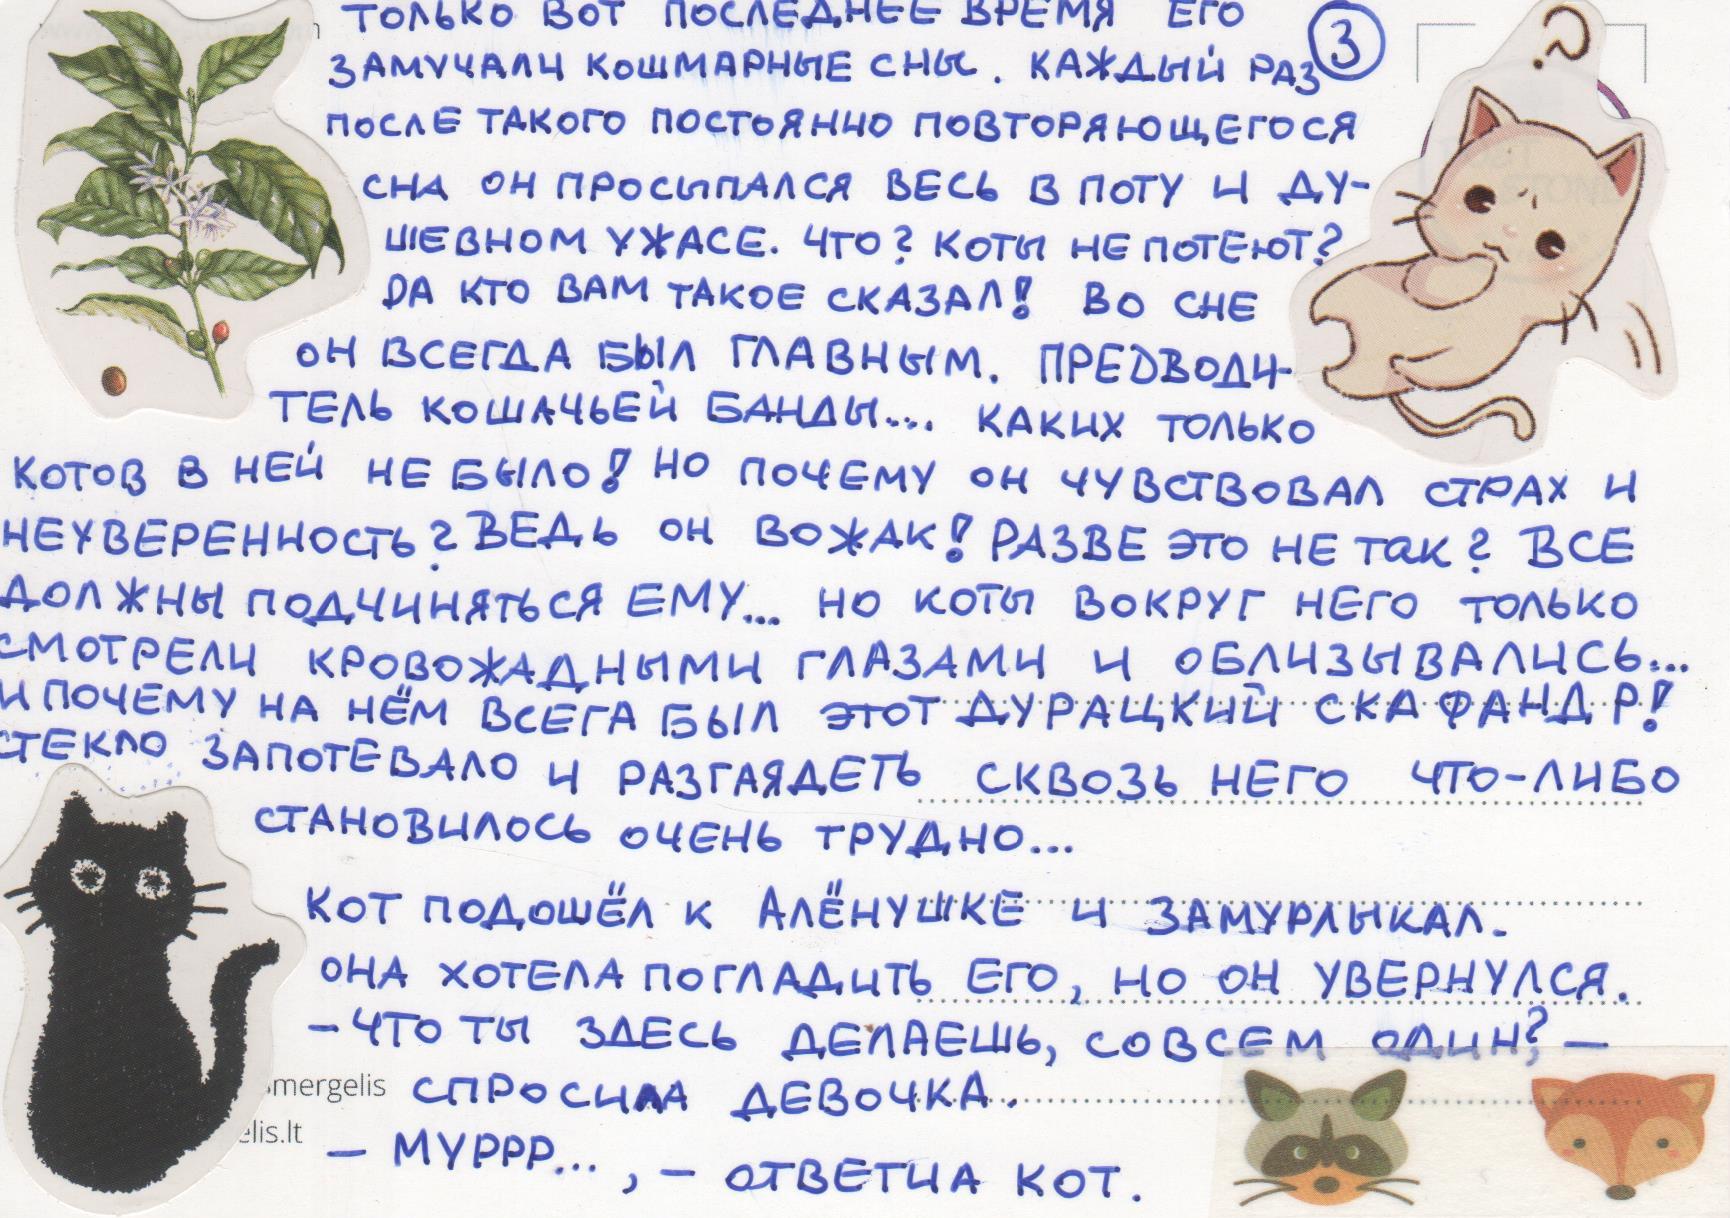 ТОЛЬКО ВОТ ПОСЛЕДНЕЕ ВРЕМЯ ЕГО
3
ЗАМУЧАЛИ КОШМАРНЫЕ СНЫ. КАЖДЫЙ РАЗ
ПОСЛЕ ТАКОГО ПОСТОЯННО ПОВТОРЯЮЩЕГОСЯ
СНА ОН ПРОСЫПАЛСЯ ВЕСЬ В ПОТУ И ДУ-
ШЕВНОМ УЖАСЕ. ЧТО? КОТЫ НЕ ПОТЕЮТ?
ДА КТО ВАМ ТАКОЕ СКАЗАЛ! ВО СНЕ
ОН ВСЕГДА БЫЛ ГЛАВНЫМ. ПРЕДВОДИ-
ТЕЛЬ КОШАЧЬЕЙ БАНДЫ... КАКИХ ТОЛЬКО
КОТОВ В НЕЙ НЕ БЫЛО! НО ПОЧЕМУ ОН ЧУВСТВОВАЛ СТРАХ И
НЕУВЕРЕННОСТЬ? ВЕДЬ ОН ВОЖАК! РАЗВЕ ЭТО НЕ ТАК? ВСЕ
ДОЛЖНЫ ПОДЧИНЯТЬСЯ ЕМУ... НО КОТЫ ВОКРУГ НЕГО ТОЛЬКО
СМОТРЕЛИ КРОВОЖАДНЫМИ ГЛАЗАМИ И ОБЛИЗЫВАЛИСЬ...
И ПОЧЕМУ НА НЁМ ВСЕГА БЫЛ ЭТОТ ДУРАЦКИЙ СКАФАНДР!
СТЕКЛО ЗАПОТЕВАЛО И РАЗГЛЯДЕТЬ СКВОЗЬ НЕГО ЧТО-ЛИБО
СТАНОВИЛОСЬ ОЧЕНЬ ТРУДНО...
КОТ ПОДОШЁЛ К АЛЁНУШКЕ И ЗАМУРЛЫКАЛ.
ОНА ХОТЕЛА ПОГЛАДИТЬ ЕГО, НО ОН УВЕРНУЛСЯ.
– ЧТО ТЫ ЗДЕСЬ ДЕЛАЕШЬ, СОВСЕМ ОДИН? –
СПРОСИЛА ДЕВОЧКА.
– МУРРР..., – ОТВЕТИЛ КОТ.
smergelis
elis.lt